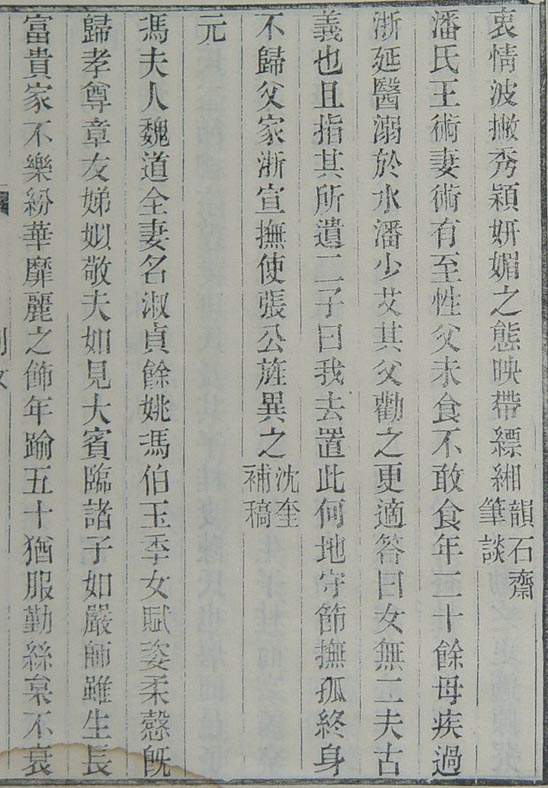 衷情波撇秀穎妍媚之態映帶縹緗韻石齋筆談
潘氏王術妻術有至性父未食不敢食年二十餘母疾過
浙延醫溺於水潘少艾其父勸之更適答曰女無二夫古
義也且指其所遺二子曰我去置此何地守節撫孤終身
不歸父家浙宣撫使張公旌異之沈奎補稿
元
馮夫人魏道全妻名淑貞餘姚馮伯玉季女賦姿柔慤旣
歸孝尊章友娣姒敬夫如見大賓臨諸子如嚴師雖生長
富貴家不樂紛華靡麗之飾年踰五十猶服勤絲枲不衰